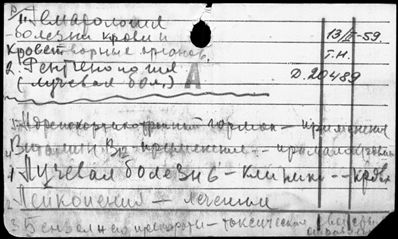 1. Гематология
болезни крови и
кроветворные органов.
2. Рентгенология
(лучевая бол.)
13/II-59.
Т.Н.
А
Д. 20489
5. Адренокортикотропный гормон – применение
4. Витамин В12 применение –
1. Лучевая болезнь – клиника – – кровь
2. Лейкопения – лечение
3. препараты – токсическое